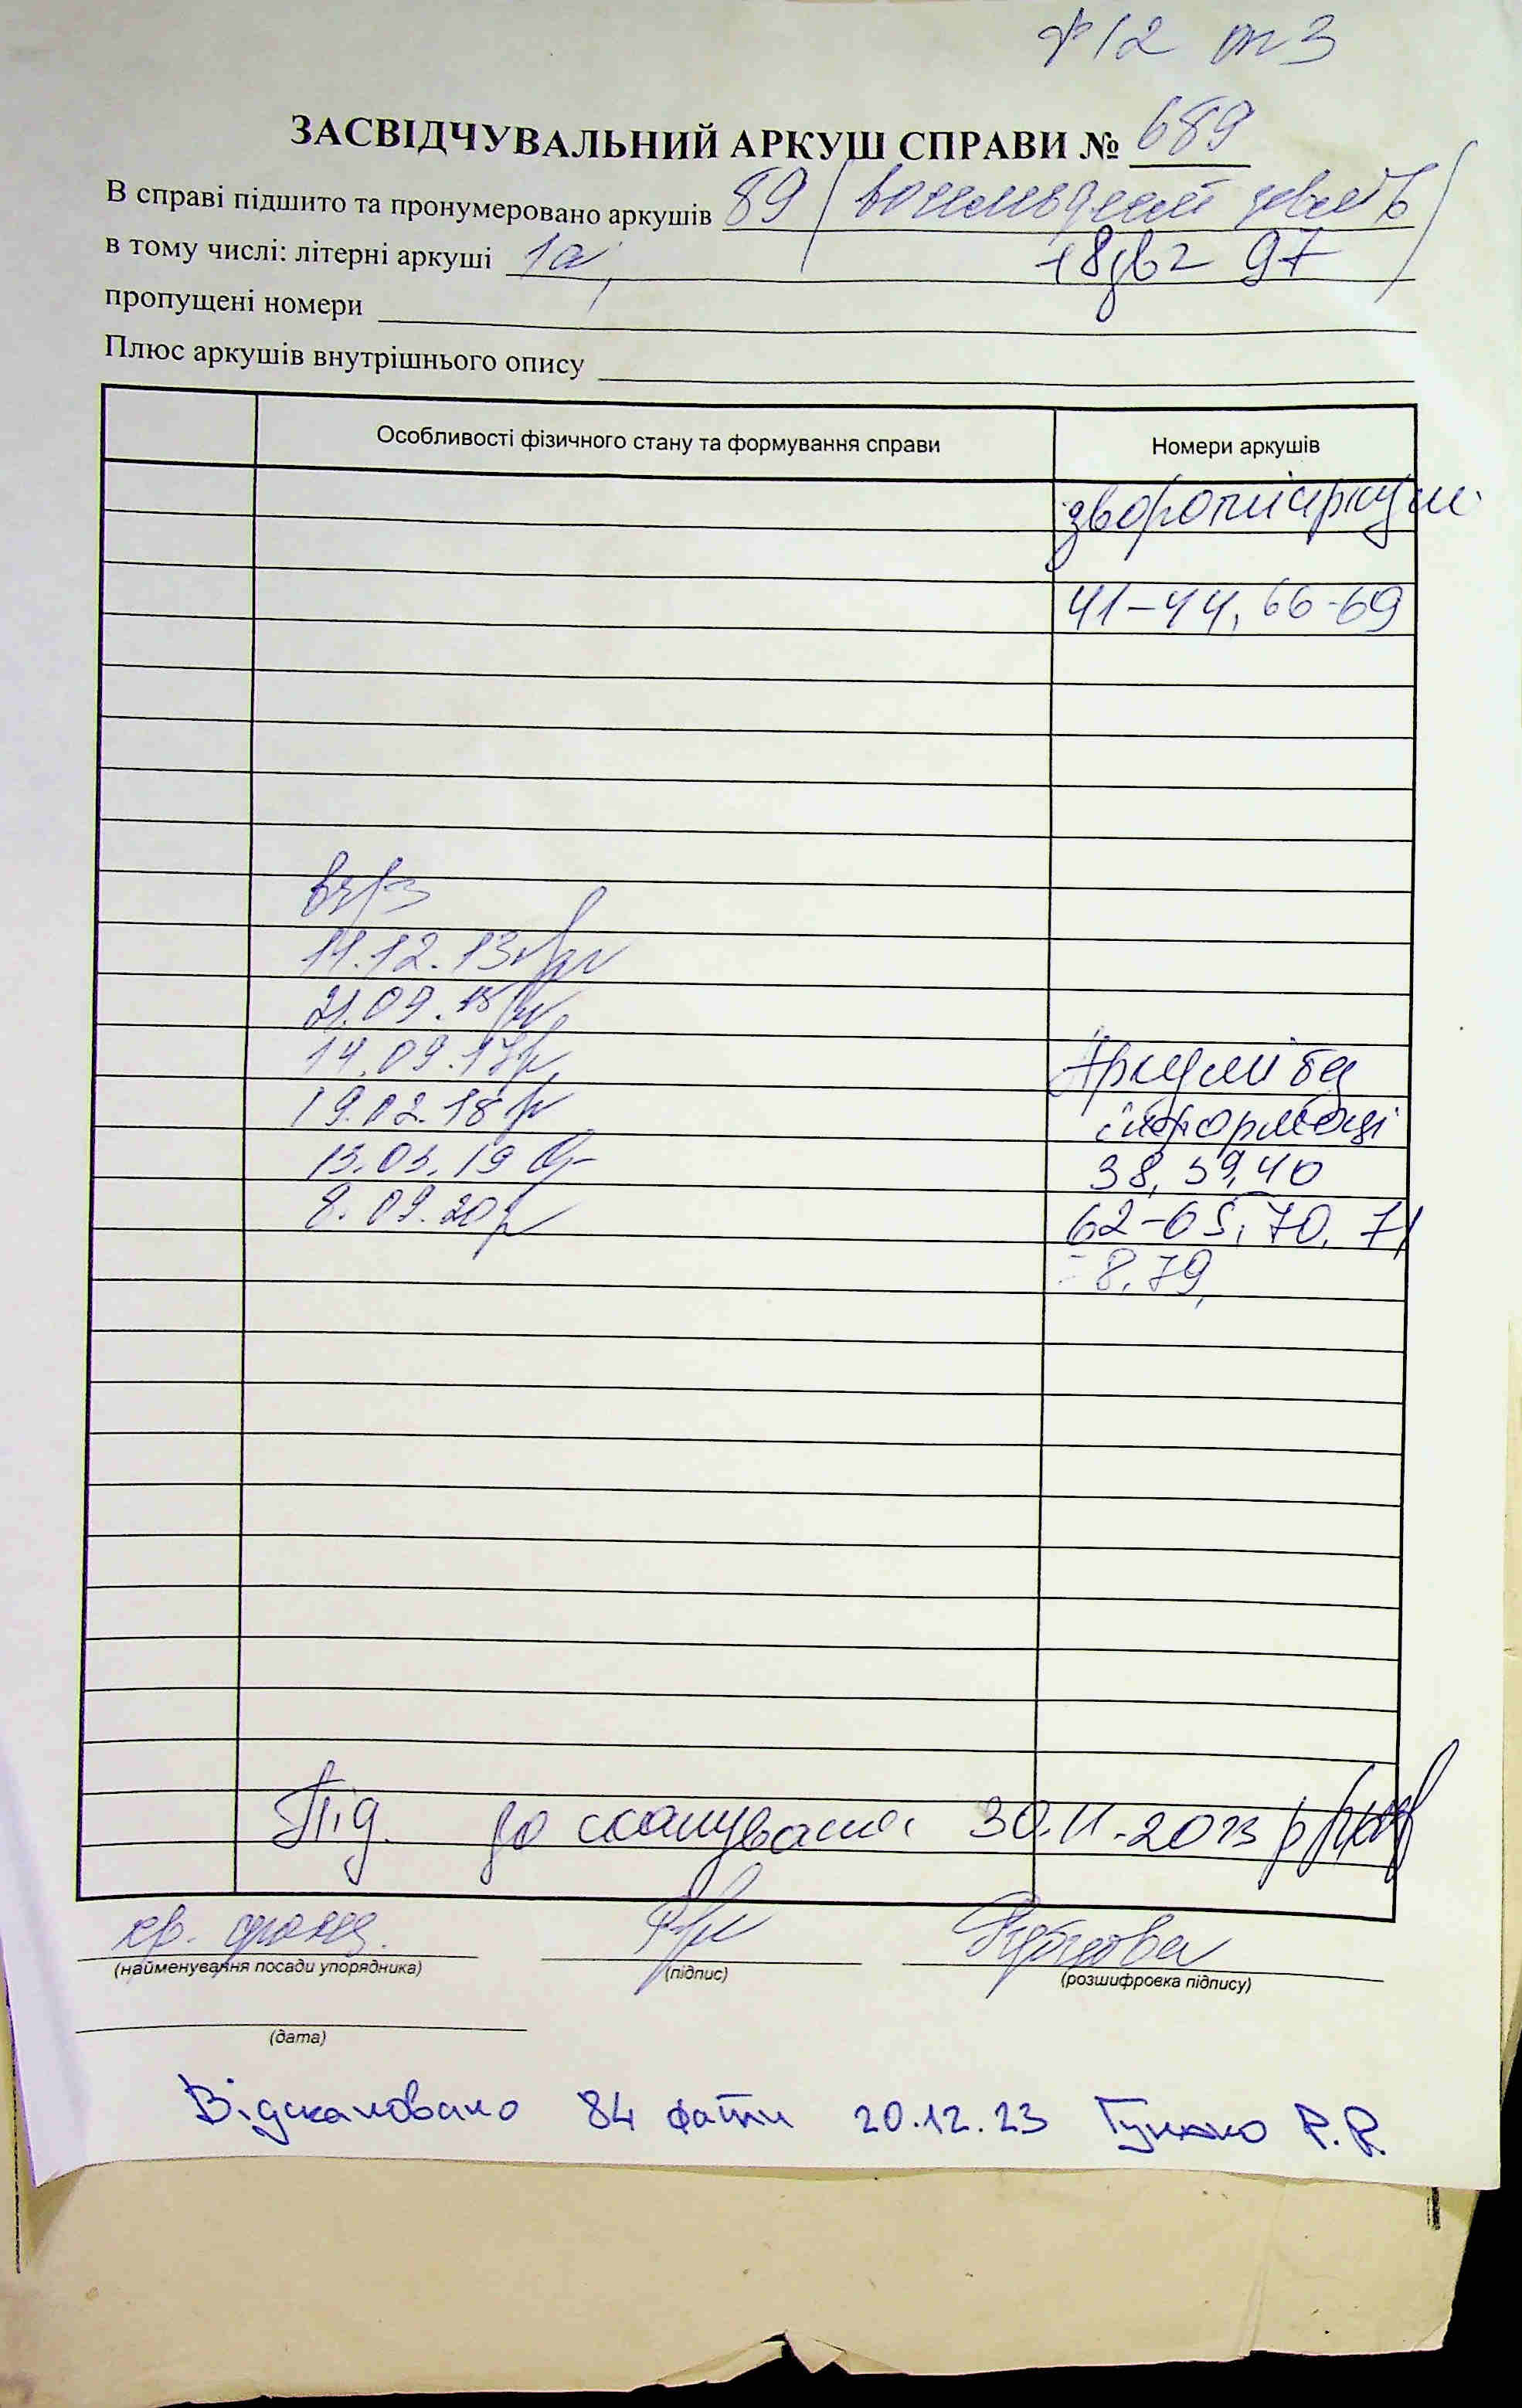 12 оп 3
ЗАСВІДЧУВАЛЬНИЙ АРКУШ СПРАВИ № 689
В справі підшито та пронумеровано аркушів 89 (вісімдесят девять)
в тому числі: літерні аркуші 1а, +8зв = 97
пропущені номери
Плюс аркушів внутрішнього опису
Особливості фізичного стану та формування справи
Номери аркушів
звороти аркуш.
41-44, 66-69
11.12.13
21.09.15
14.09.17
19.02.18
13.03.19
8.09.20
Аркуші без
інформації
38, 39, 40
62-65, 70, 71
79,
Під. до сканування 30.11.2023 р
(найменування посади упорядника)
(підпис)
(розшифровка підпису)
(дата)
Відскановано 84 файли 20.12.23 Р.Р.